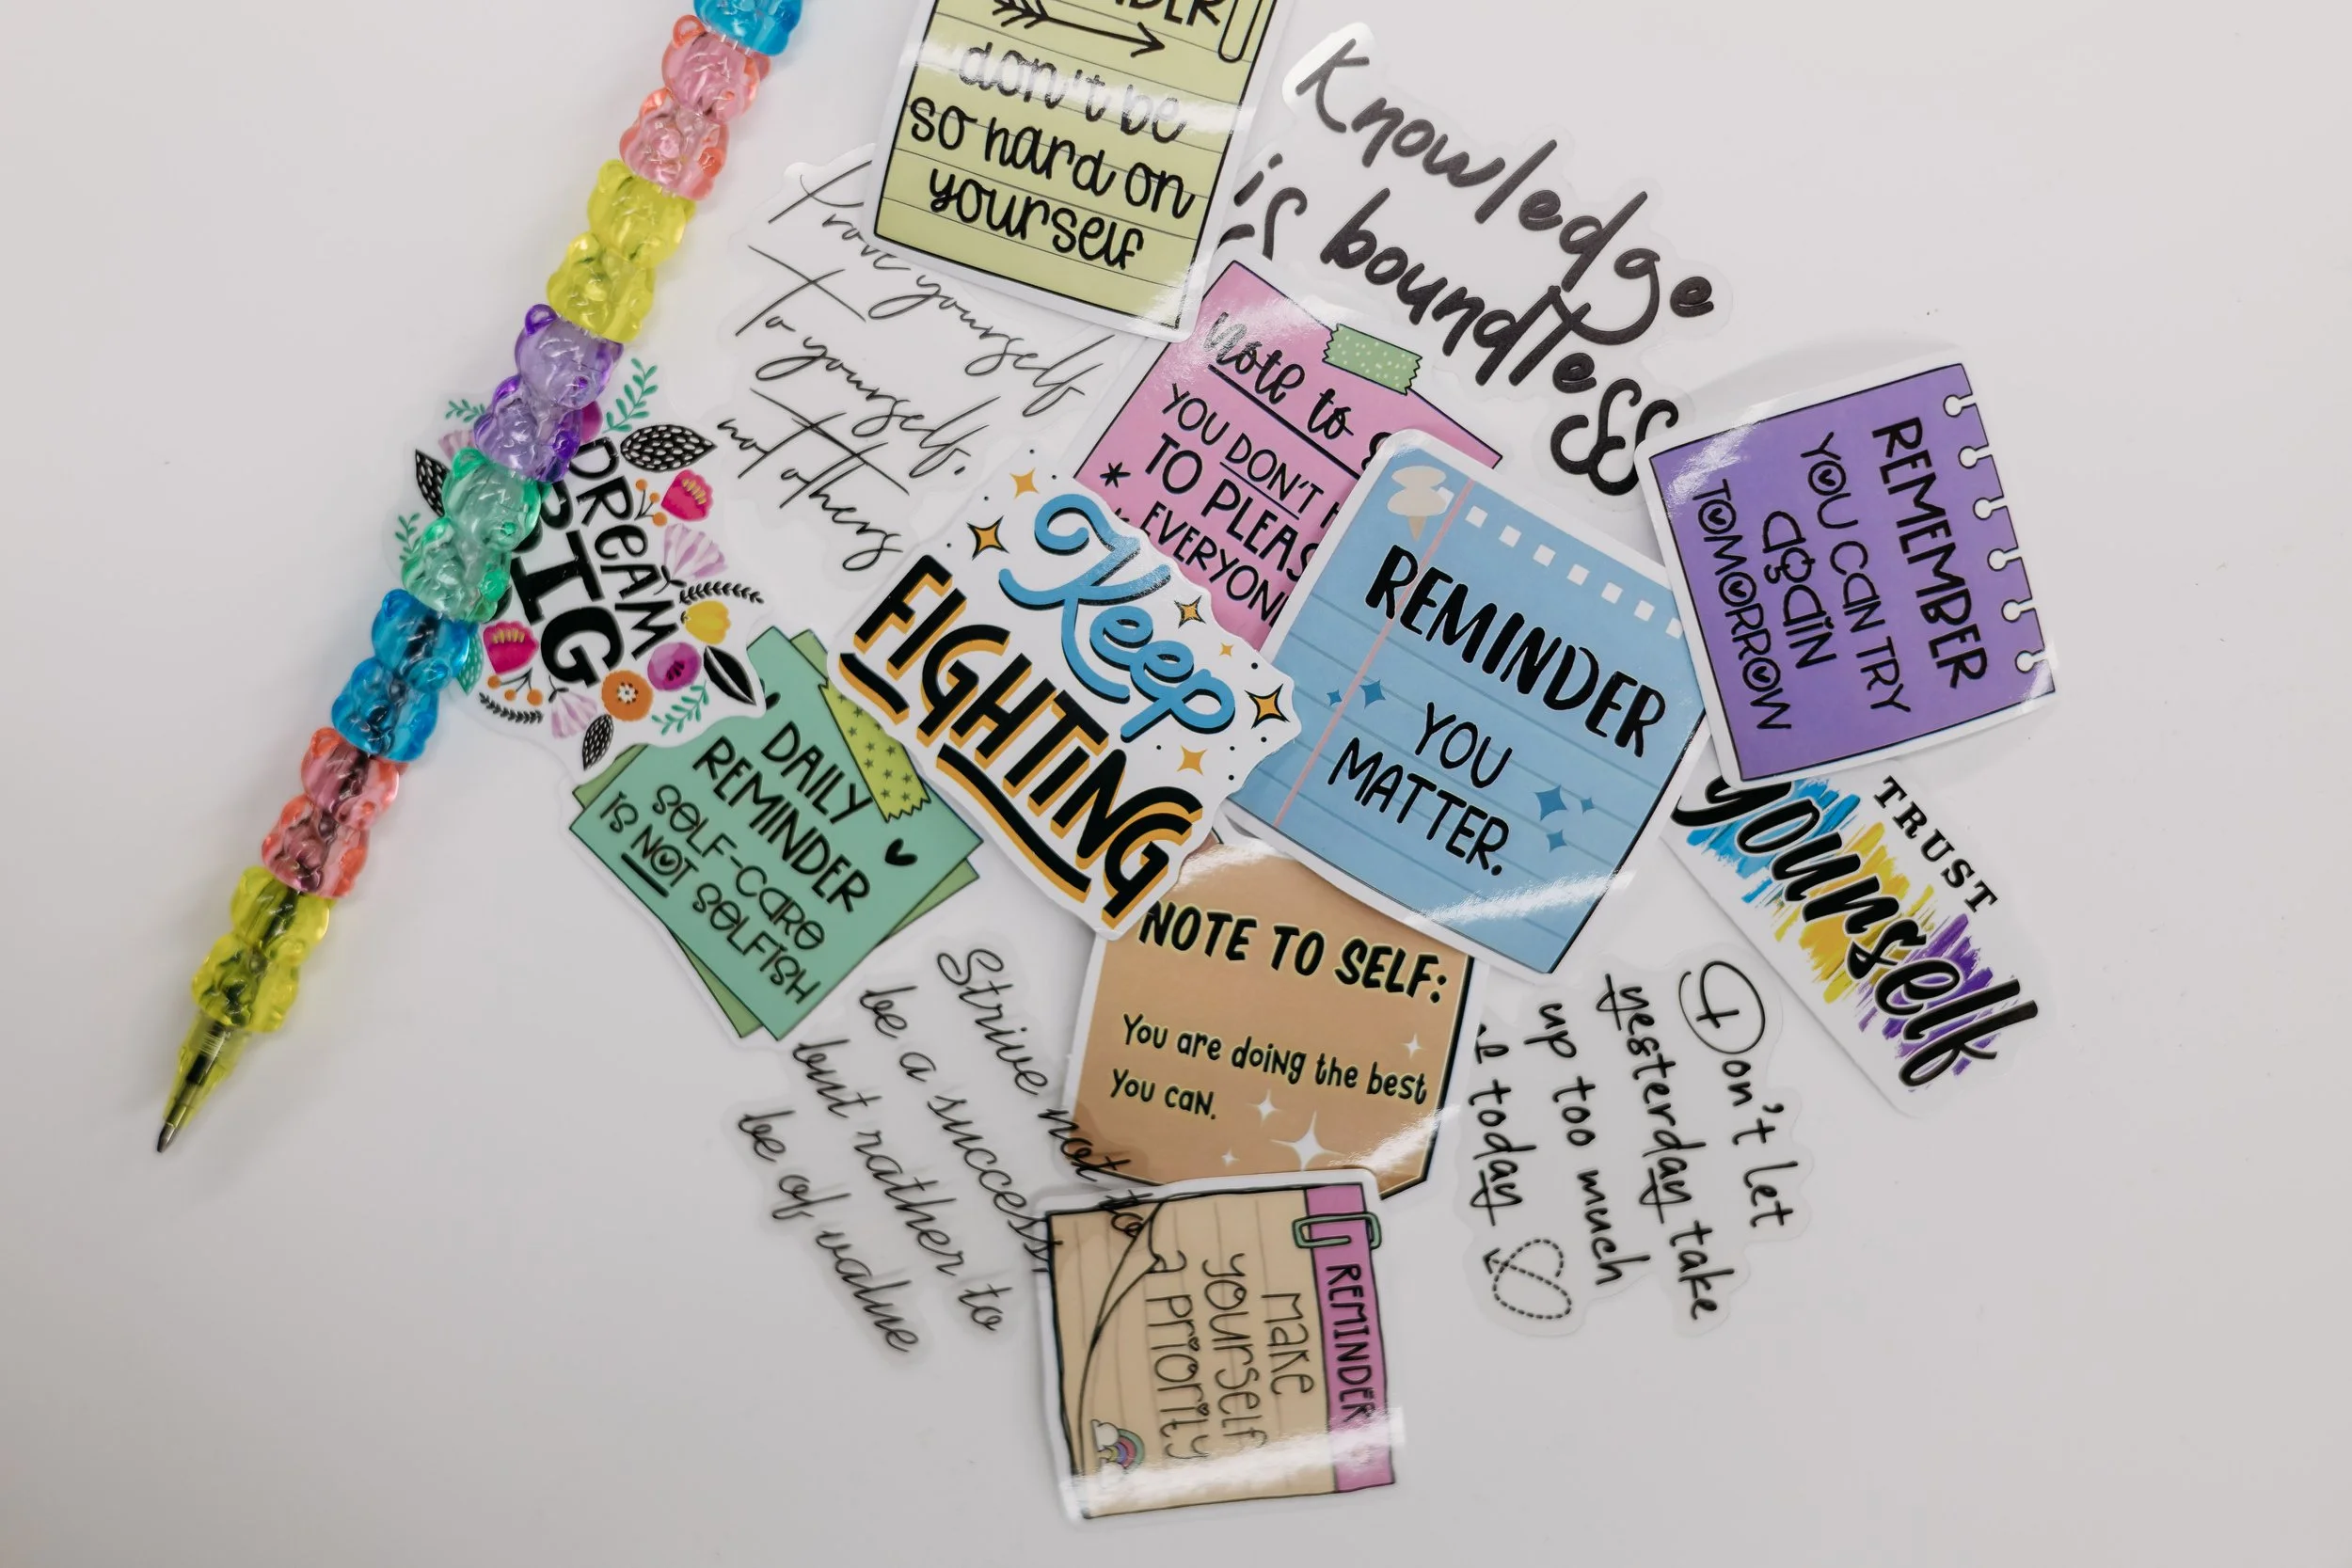 don't be
so hard on
yourself
Knowledge
is boundless
Prove yourself
To yourself,
not others
Note to
YOU DON'T
TO
EVERYON
REMEMBER
YOU CAN TRY
again
TOMORROW
DREAM
BIG
Keep
FIGHTING
REMINDER
YOU
MATTER.
DAILY
REMINDER
SELF-CARE
IS NOT SELFISH
TRUST
yourself
NOTE TO SELF:
You are doing the best
You can.
Strive not to
be a success,
but rather to
be of value
Don't let
yesterday take
up too much
today
REMINDER
Make
yourself
a priority